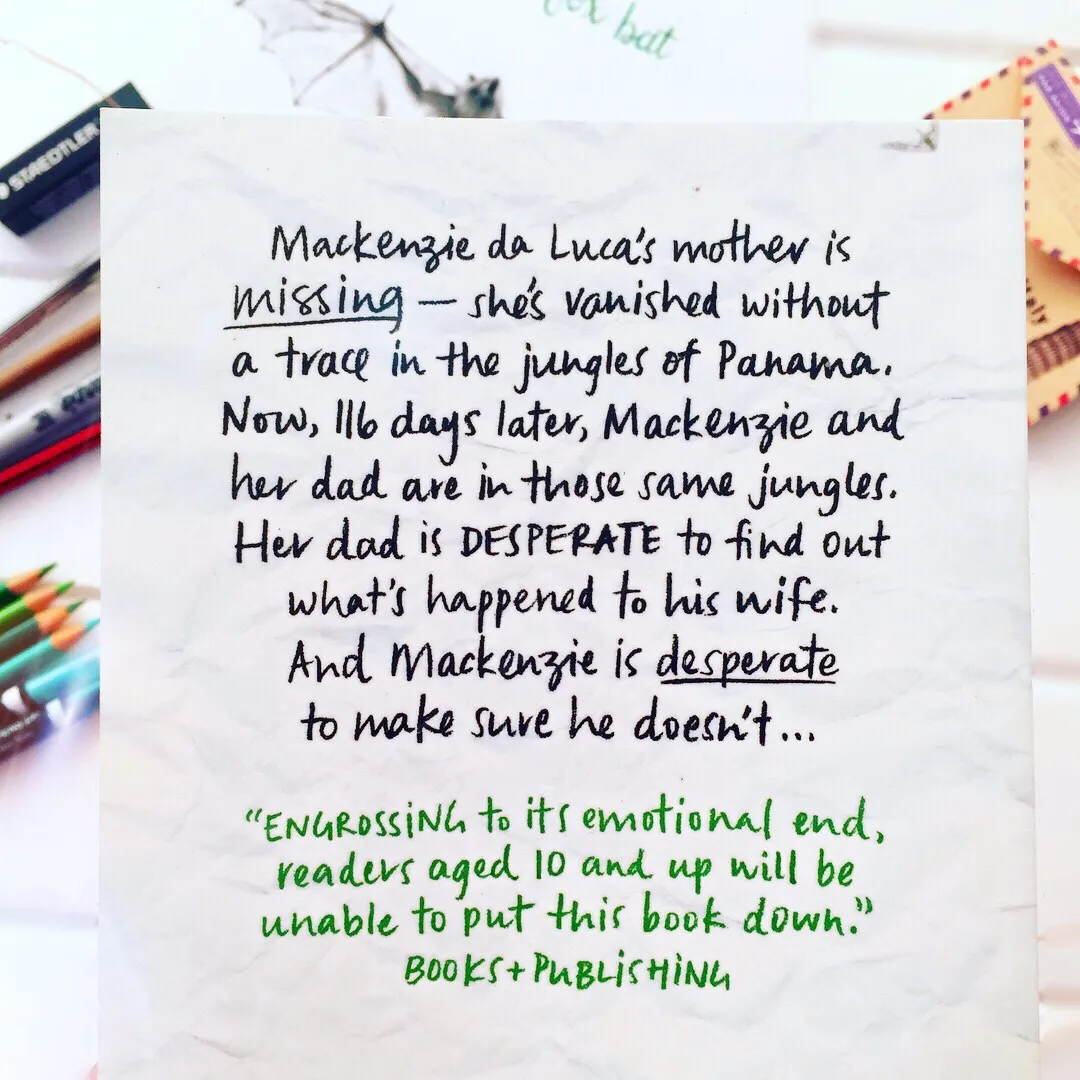 bat
STAEDTLER
Mackenzie da Luca's mother is
missing — she's vanished without
a trace in the jungles of Panama.
Now, 116 days later, Mackenzie and
her dad are in those same jungles.
Her dad is DESPERATE to find out
what's happened to his wife.
And Mackenzie is desperate
to make sure he doesn't...
"ENGROSSING to its emotional end,
readers aged 10 and up will be
unable to put this book down."
BOOKS+PUBLISHING